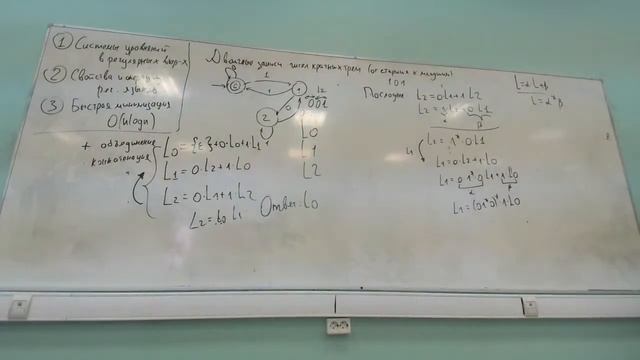 ① Системы уравнений
в регулярных выр-х
② Свойства
рег. языков
③ Быстрая минимизация
O(n log n)
Двоичные записи чисел кратных трём (от старших к младшим)
101
1
1
0
2
001
L0
L1
L2
+ объединение
конкатенация
L0 = {ε}+0·L0+1·L1
L1 = 0·L2+1·L0
L2 = 0·L1+1·L2
Ответ: L0
L2 = 0·L1+1·L2
L2 = 1·L2+0·L1
α β
L2 = 1*·0L1
L1 = 0·L2+1·L0
L1 = 0·1*·0L1+1·L0
α β
L1 = (01*0)*·1·L0
L=α·L+β
L=α*β